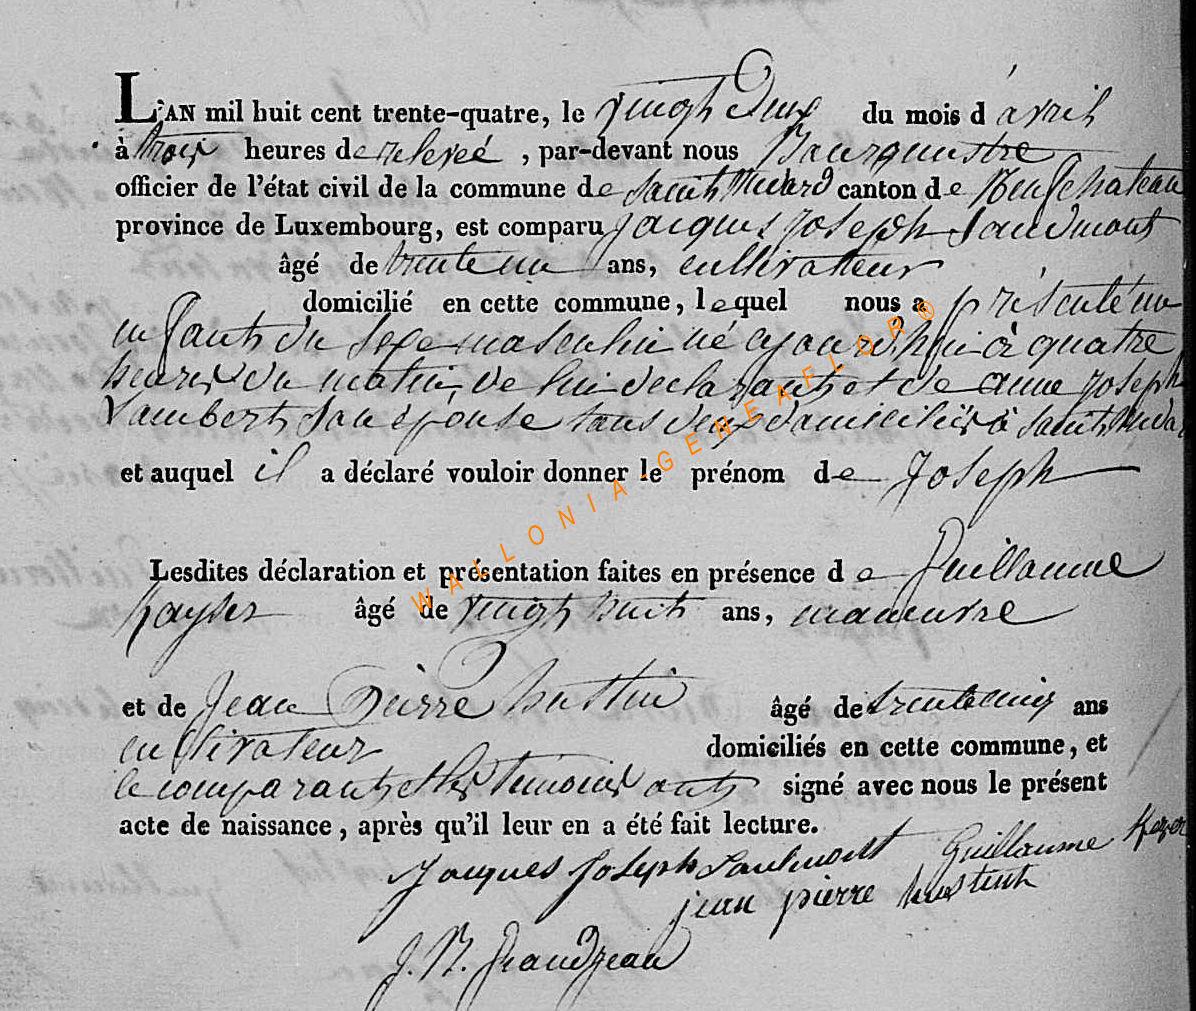 L'AN mil huit cent trente-quatre, le vingt Deux du mois d'avril
à trois heures de relevée, par-devant nous Bourgmestre
officier de l'état civil de la commune de Saint Médard canton de Neufchateau
province de Luxembourg, est comparu Jacques Joseph Saudmont
âgé de trente un ans, cultivateur
domicilié en cette commune, lequel nous a présenté un
enfant du sexe masculin né ajourd'hui à quatre
heures du matin, de lui declarant et de anne joseph
Lambert son épouse tous deux domiciliés à Saint Médard
et auquel il a déclaré vouloir donner le prénom de Joseph
Lesdites déclaration et présentation faites en présence de Guillaume
Kayser âgé de vingt huit ans, maneuvre
et de Jean Pierre hustin âgé de trente cinq ans
cultivateur domiciliés en cette commune, et
le comparant et les temoins ont signé avec nous le présent
acte de naissance, après qu'il leur en a été fait lecture.
Jacques Joseph Saudmont Guillaume Kezer
jean pierre hustin
J. N. Grandjean
WALLONIA-GENEAFLOR®